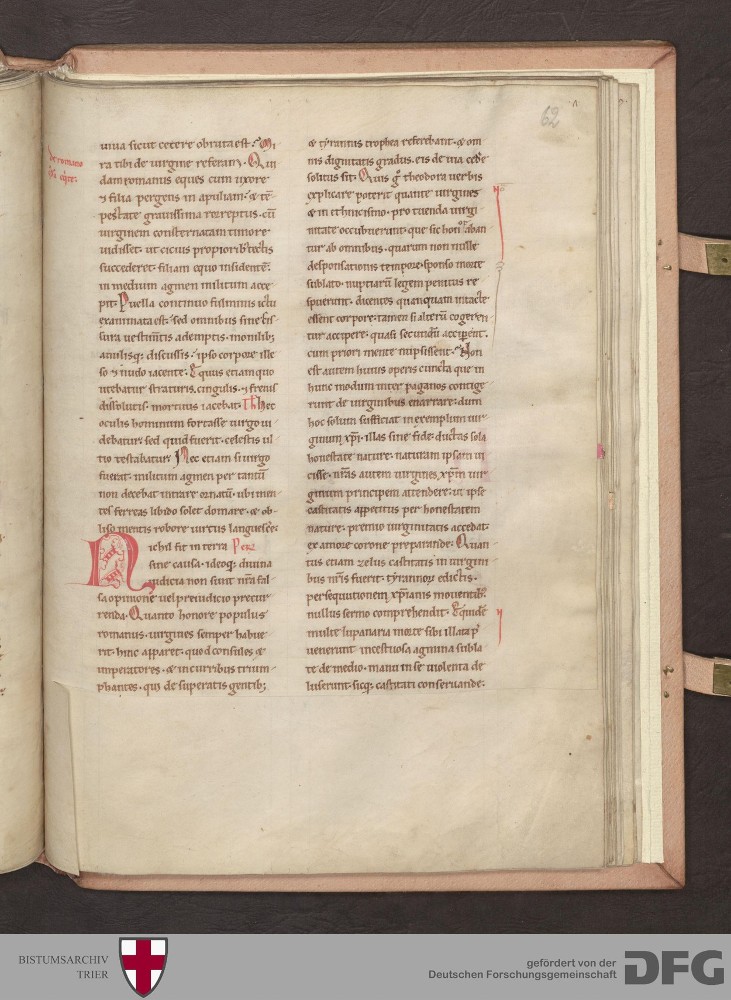 62
de romano
equite.
uiua sicut cetere obruta est. Mi
ra tibi de uirgine referam. Qui
dam romanus eques cum uxore
⁊ filia pergens in apuliam. & tē
pestate grauissima rerreptus. cū
uirginem consternatam timore
uidisset. ut cicius propiorib; tectis
succederet. filiam equo insidentē.
in medium agmen militum acce
pit. Puella continuo fulminis ictu
examinata est. sed omnibus sine scis
sura uestimtis ademptis. monilib;
anulisq; discussis. ipso corpore ille
so ⁊ nudo iacente. Equus etiam quo
utebatur straturis. cingulis. ⁊ frenis
dissolutis. mortuus iacebat. Th Hec
oculis hominum fortasse uirgo ui
debatur. sed quid fuerit. celestis ul
tio testabatur. Nec etiam si uirgo
fuerat. militum agmen per tantū
non decebat intrare ornatū. ubi men
tes ferreas libido solet domare. & ob
liso mentis robore uirtus languescē.
Nichil fit in terra Per.
sine causa. ideoq; diuina
iudicia non sunt nr̄a fal
sa opinione uel preiudicio precur
renda. Quanto honore populus
romanus. uirgines semper habue
rit. hinc apparet. quod consules &
imperatores. & in curribus trium
phantes. qui de superatis gentib;
& tyrannis trophea referebant. & om
nis dignitatis gradus. eis de uia cedē
solitus sit. Quis g̊ theodora uerbis
explicare poterit quante uirgines
& in ethincismo. pro tuenda uirgi
nitate occubuerint. que sic honoraban
tur ab omnibus. quarum non nulle
desponsationis tempore. sponso morte
sublato. nuptiarū legem penitus re
spuerunt. dicentes quanquam intacte
essent corpore. tamen si alterū cogeren
tur accipere. quasi secundū acciperent.
cum priori mente nupsissent. Non
est autem huius operis cuncta que in
hunc modum inter paganos contige
runt de uirginibus enarrare. dum
hoc solum sufficiat in exemplum uir
ginum xp̄i. illas sine fide. ductas sola
honestate nature. naturam ipsam ui
cisse. nr̄as autem uirgines. xp̄m uir
ginum principem attendere. ut ipse
castitatis appetitus per honestatem
nature. premio uirginitatis accedat.
ex amore corone preparande. Quan
tus etiam zelus castitatis in uirgini
bus nr̄is fuerit. tyrannorz edictis.
persequutionem xp̄ianis mouentib;.
nullus sermo comprehendit. Equidē
multe lupanaria morte sibi illata p̄
uenerunt. incestuosa agmina subla
te de medio. manu in se uiolenta de
luserunt. sicq; castitati conseruande.
BISTUMSARCHIV
TRIER
gefördert von der
Deutschen Forschungsgemeinschaft
DFG